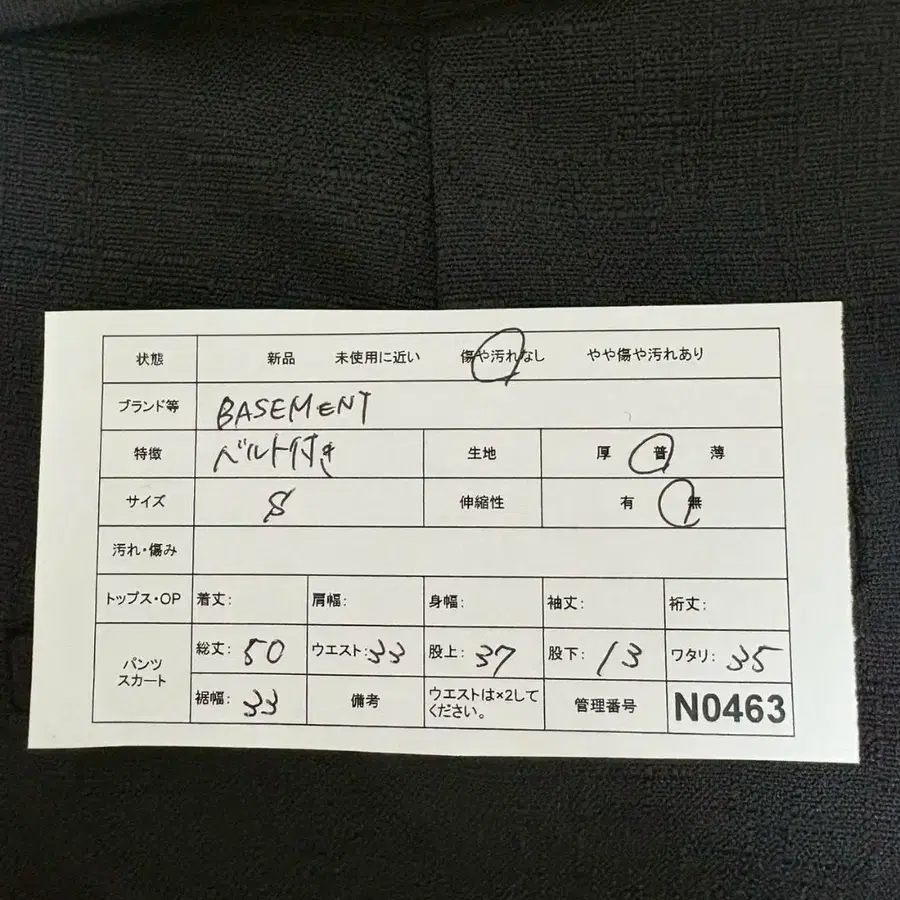 状態 新品 未使用に近い 傷や汚れなし やや傷や汚れあり
ブランド等 BASEMENT
特徴 ベルト付き 生地 厚 普 薄
サイズ S 伸縮性 有 無
汚れ・傷み
トップス・OP 着丈: 肩幅: 身幅: 袖丈: 裄丈:
パンツ
スカート
総丈: 50 ウエスト: 33 股上: 37 股下: 13 ワタリ: 35
裾幅: 33 備考 ウエストは×2して
ください。 管理番号 N0463